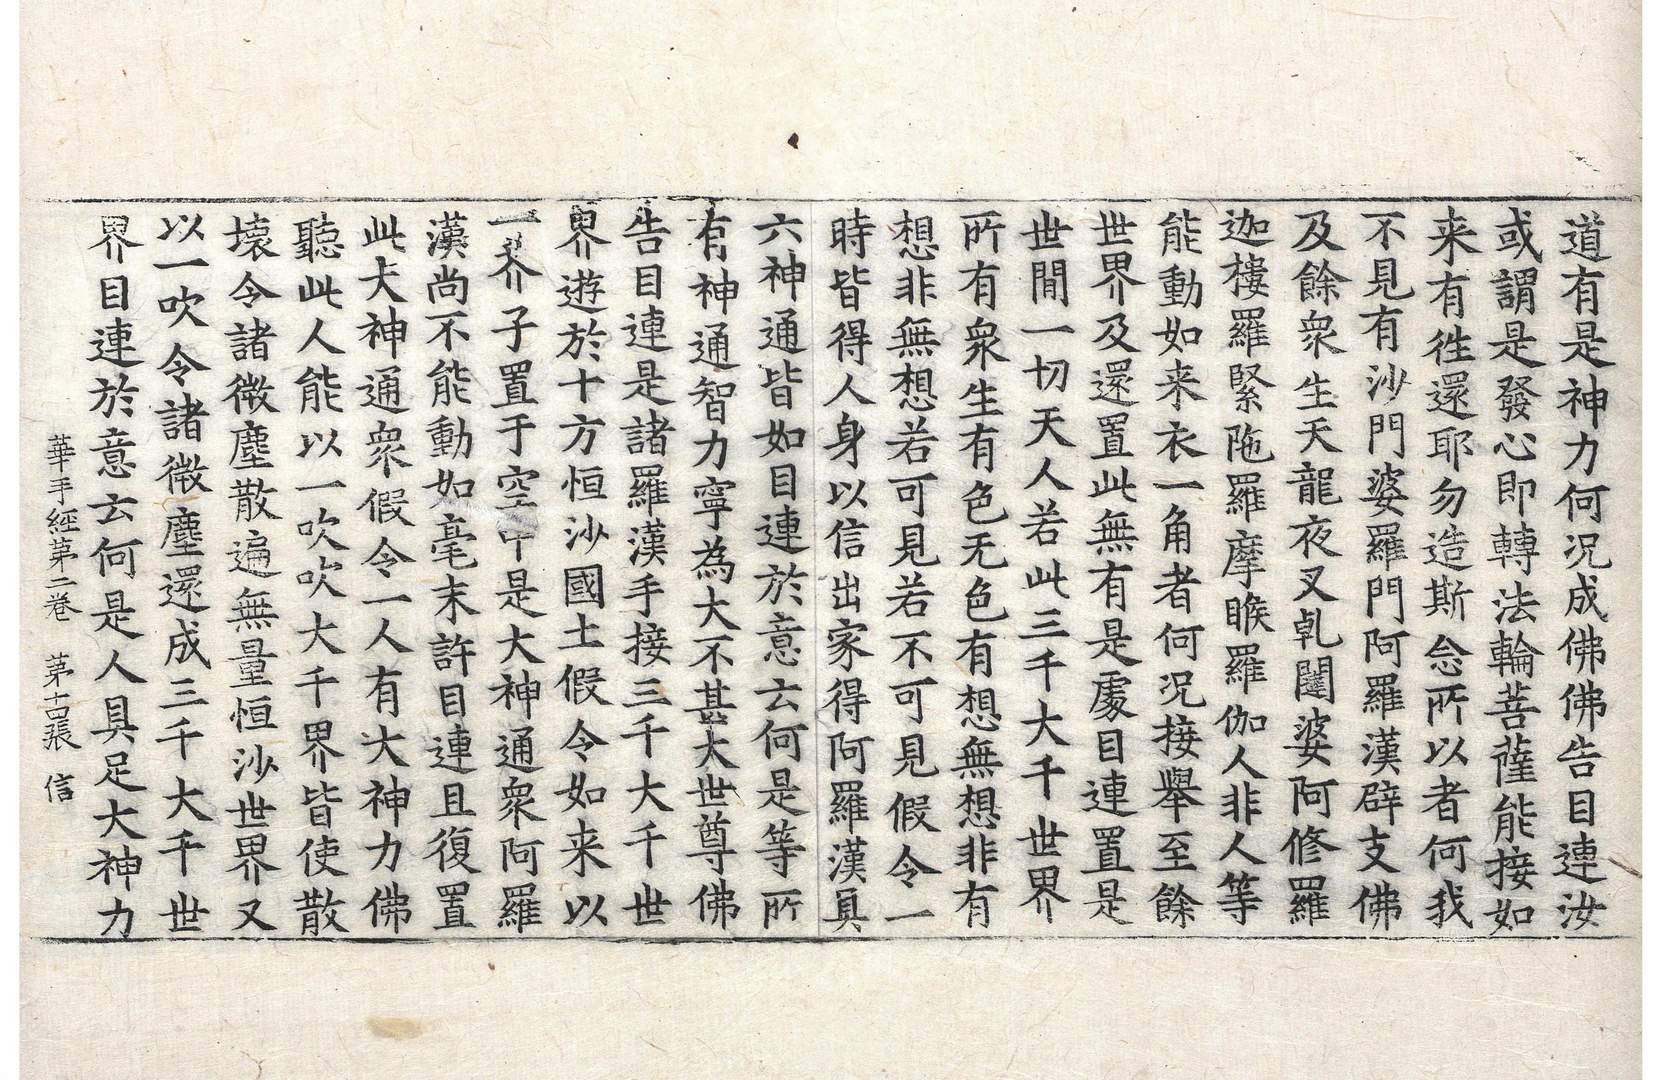 道有是神力何況成佛佛告目連汝
或謂是發心即轉法輪菩薩能接如
来有徃還耶勿造斯念所以者何我
不見有沙門婆羅門阿羅漢辟支佛
及餘衆生天龍夜叉乹闥婆阿修羅
迦樓羅緊陁羅摩睺羅伽人非人等
能動如来衣一角者何況接舉至餘
世界及還置此無有是處目連置是
世閒一切天人若此三千大千世界
所有衆生有色无色有想無想非有
想非無想若可見若不可見假令一
時皆得人身以信出家得阿羅漢具
六神通皆如目連於意云何是等所
有神通智力寧為大不甚大世尊佛
告目連是諸羅漢手接三千大千世
界遊於十方恒沙國土假令如来以
一芥子置于空中是大神通衆阿羅
漢尚不能動如毫末許目連且復置
此大神通衆假令一人有大神力佛
聽此人能以一吹吹大千界皆使散
壊令諸微塵散遍無量恒沙世界又
以一吹令諸微塵還成三千大千世
界目連於意云何是人具足大神力
華手經第二卷 第十四張 信